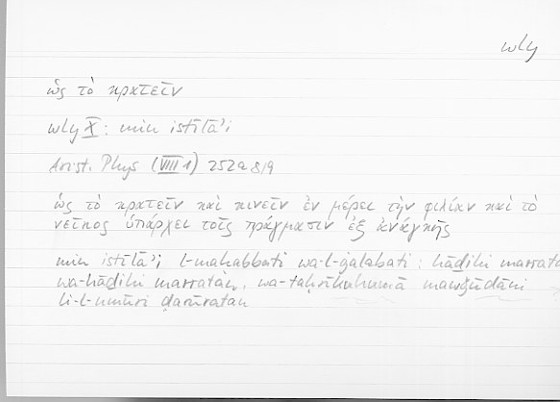 wly
ὡς τὸ κρατεῖν
wly X: min istīlāʾi
Arist. Phys (VIII 1) 252a8/9
ὡς τὸ κρατεῖν καὶ κινεῖν ἐν μέρει τὴν φιλίαν καὶ τὸ
νεῖκος ὑπάρχει τοῖς πράγμασιν ἐξ ἀνάγκης
min istīlāʾi l-maḥabbati wa-l-ġalabati : hāḏihi marrata
wa-hāḏihi marratan, wa-taḥrīkuhumā mawǧūdāni
li-l-umūri ḍarūratan